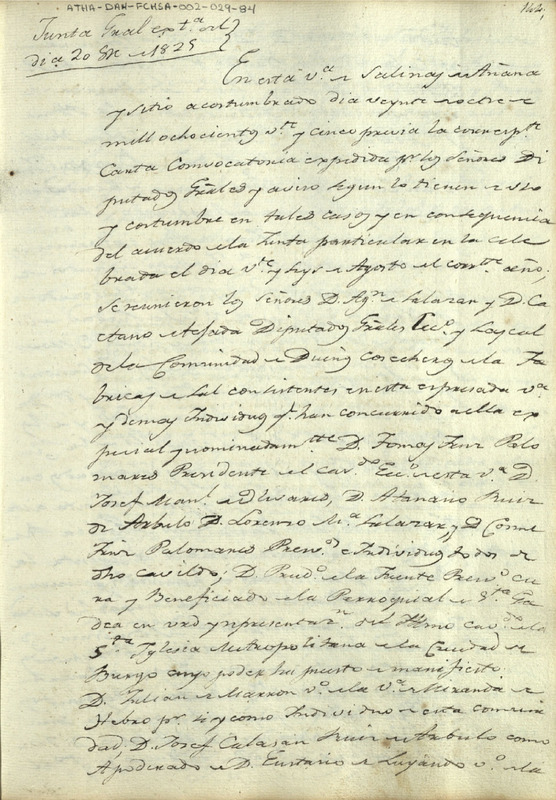 ATHA-DAN-FCHSA-002-029-84
144,
Junta Gral extª del
dia 20 8re de 1825
En esta vª de Salinas de Añana
y sitio acostumbrado dia veynte de octre de
mill ochocientos vte y cinco previa la correspte
Canta Convocatoria expedida pr los Señores Di
putados Grãles y aviso segun lo tienen de uso
y costumbre en tales casos y en consequencia
del acuerdo de la Junta particular en la cele
brada el dia vte y seys de Agosto del corrte año;
se reunieron los Señores D. Agn de Salazar y D. Ca
etano de Tejada Diputados Grales Ecco y Lascal
de la Comunidad de Dueños Cosecheros de la Fa
bricas de Sal consistentes en esta expresada vª
y demas Individuos q. han concurrido a ella ex
pecial y nominadamtte D. Tomas Fernz Palo
mares Presidente del Cavdo Ecco de esta vª D.
Josef Manl de Olivares, D. Atanasio Ruiz
de Arbulo D. Lorenzo Mª Salazar, y D. Cosme
Fernz Palomares Presvos e Individuos todos de
dho cavildo; D. Prudo de la Fuente Presvo Cu
ra y Beneficiado de la Parroquial de Sta Ga
dea en vrd y representazn del Yltmo cavdo de la
Sta Yglesia Metropolitana de la Ciudad de
Burgo cuyo poder ha puesto de manifiesto
D. Julian de Marron vo de la vª de Miranda de
Hebro pr si y como Individuo de esta comuni
dad, D. Josef Calasan Ruiz de Arbulo como
Apoderado de D. Eustasio de Luyando vo de la